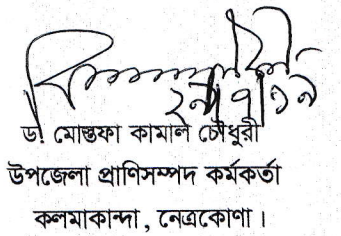 ডাঃ মোস্তফা কামাল চৌধুরী
উপজেলা প্রাণিসম্পদ কর্মকর্তা
কলমাকান্দা, নেত্রকোণা।